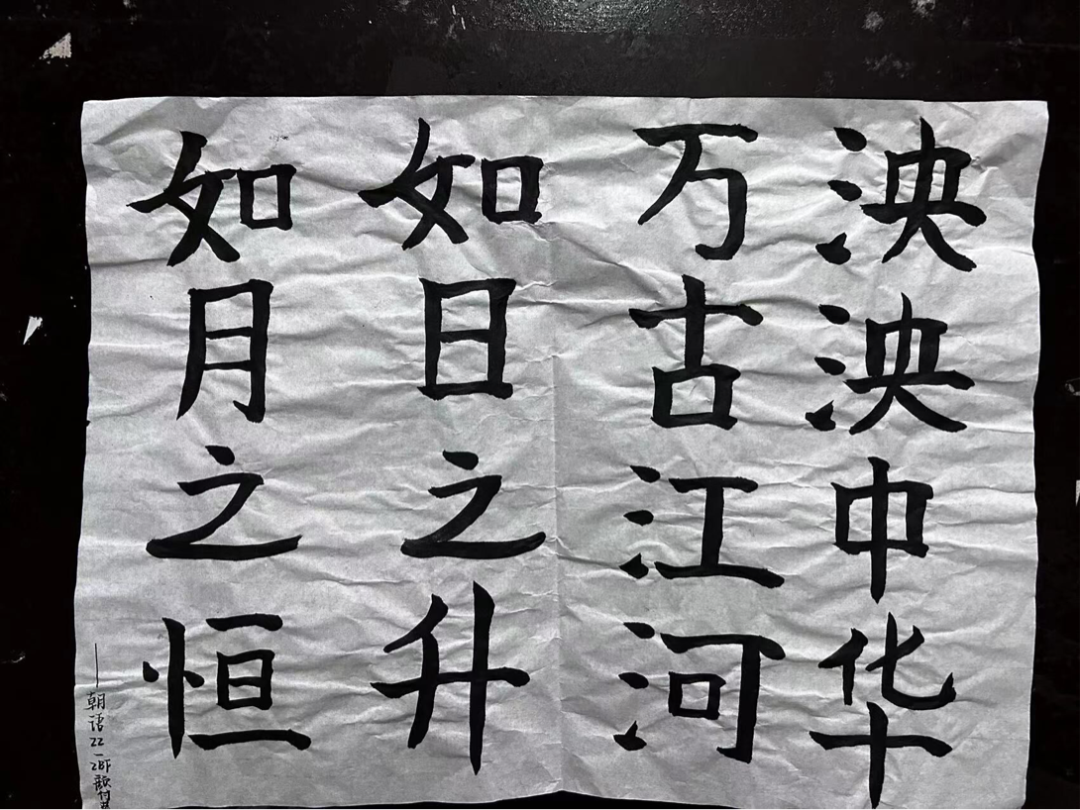 泱泱中华
万古江河
如日之升
如月之恒
——朝语22